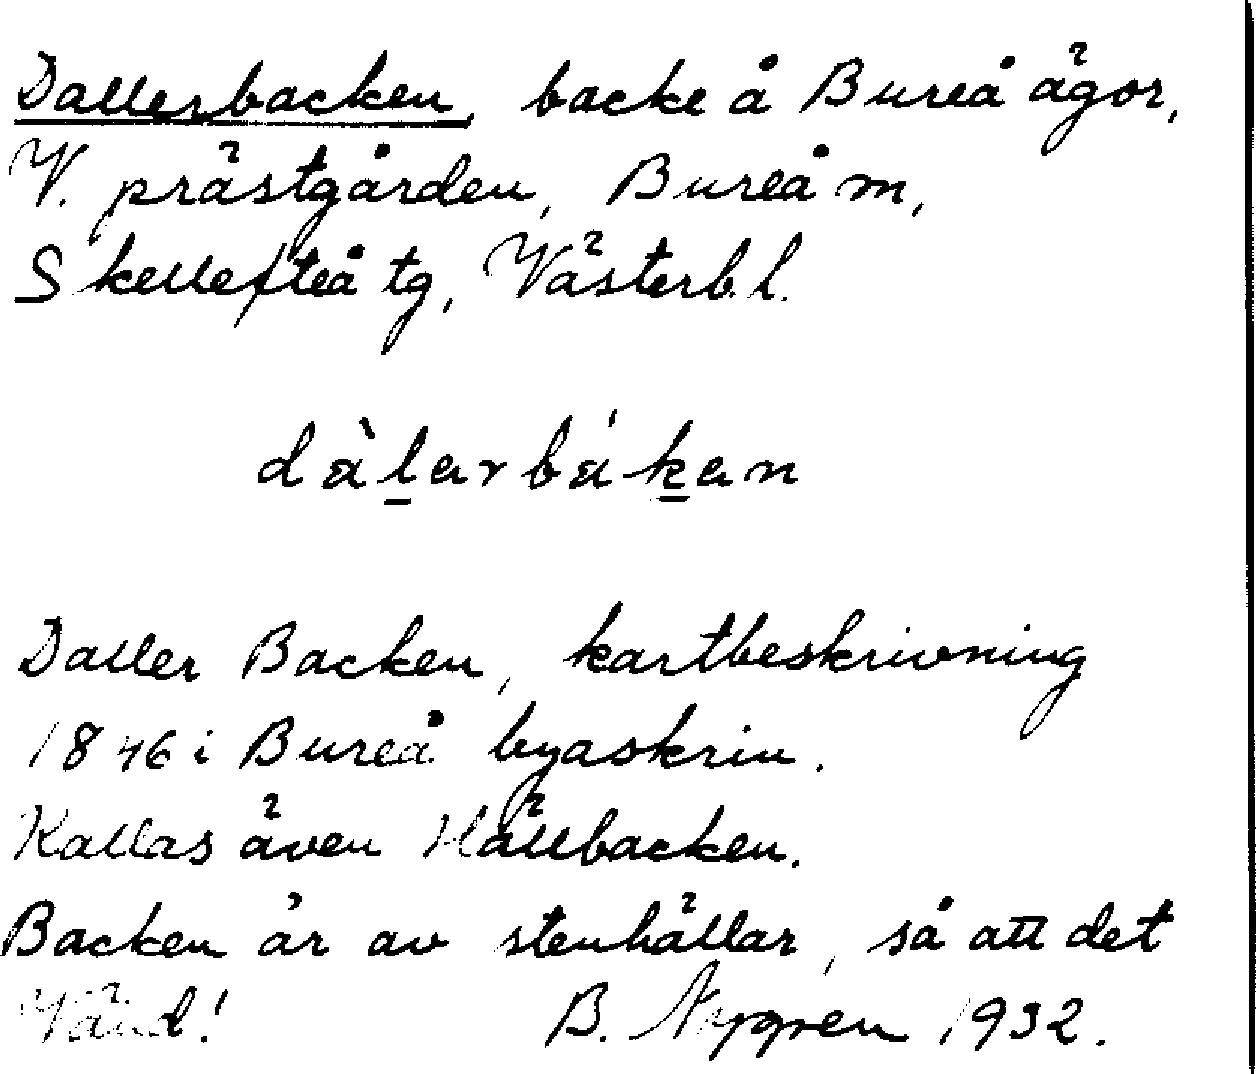 Dallerbacken, backe å Bureå ägor,
V. prästgården, Bureå m,
Skellefteå tg, Västerb. l.
dàlarbákan
Daller Backen, kartbeskrivning
1846 i Bureå byaskrin.
Kallas även Hällbacken.
Backen är av stenhällar, så att det
Vänd! B. Nygren 1932.